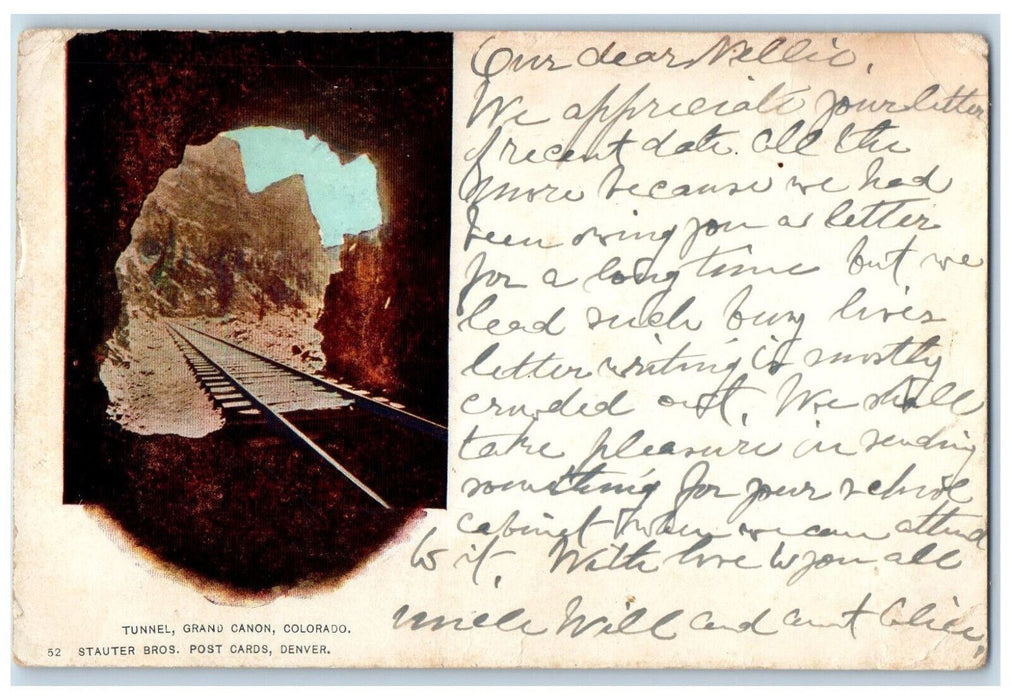 Our dear Nellie,
We appreciate your letter
of recent date. All the
more because we had
been owing you a letter
for a long time but we
lead such busy lives
letter writing is mostly
crowded out. We shall
take pleasure in sending
something for your school
cabinet when we can attend
to it. With love to you all
Uncle Will and aunt Alice.
TUNNEL, GRAND CANON, COLORADO.
52 STAUTER BROS. POST CARDS, DENVER.